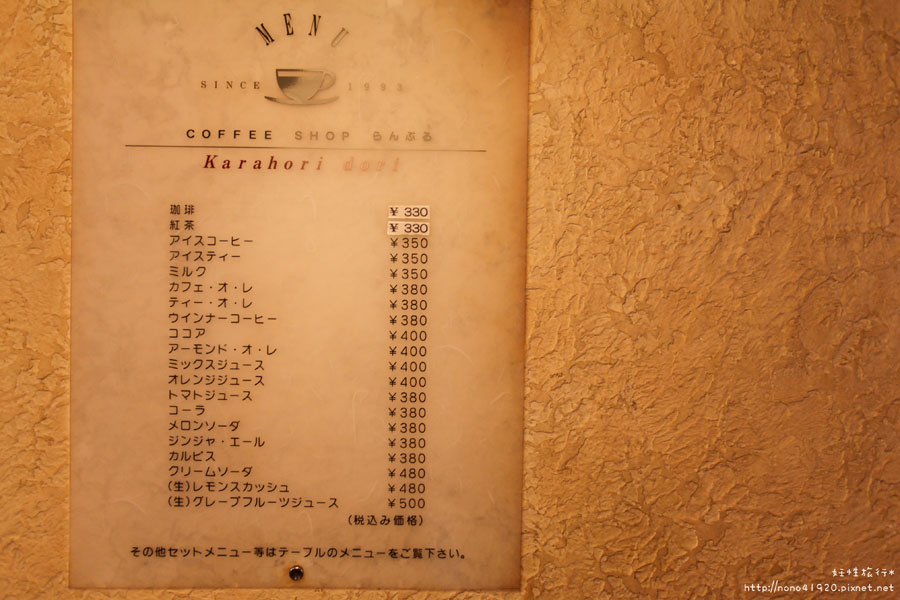 MENU
SINCE 1993
COFFEE SHOP らんぶる
Karahori dori
珈琲 ¥330
紅茶 ¥330
アイスコーヒー ¥350
アイスティー ¥350
ミルク ¥350
カフェ・オ・レ ¥380
ティー・オ・レ ¥380
ウインナーコーヒー ¥380
ココア ¥400
アーモンド・オ・レ ¥400
ミックスジュース ¥400
オレンジジュース ¥400
トマトジュース ¥380
コーラ ¥380
メロンソーダ ¥380
ジンジャ・エール ¥380
カルピス ¥380
クリームソーダ ¥480
(生)レモンスカッシュ ¥480
(生)グレープフルーツジュース ¥500
(税込み価格)
その他セットメニュー等はテーブルのメニューをご覧下さい。
妊性旅行*
http://nono41920.pixnet.net